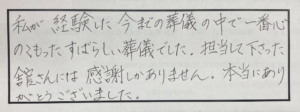 私が経験した今までの葬儀の中で一番心
のこもったすばらしい葬儀でした。担当して下さった
舘さんには感謝しかありません。本当にあり
がとうございました。